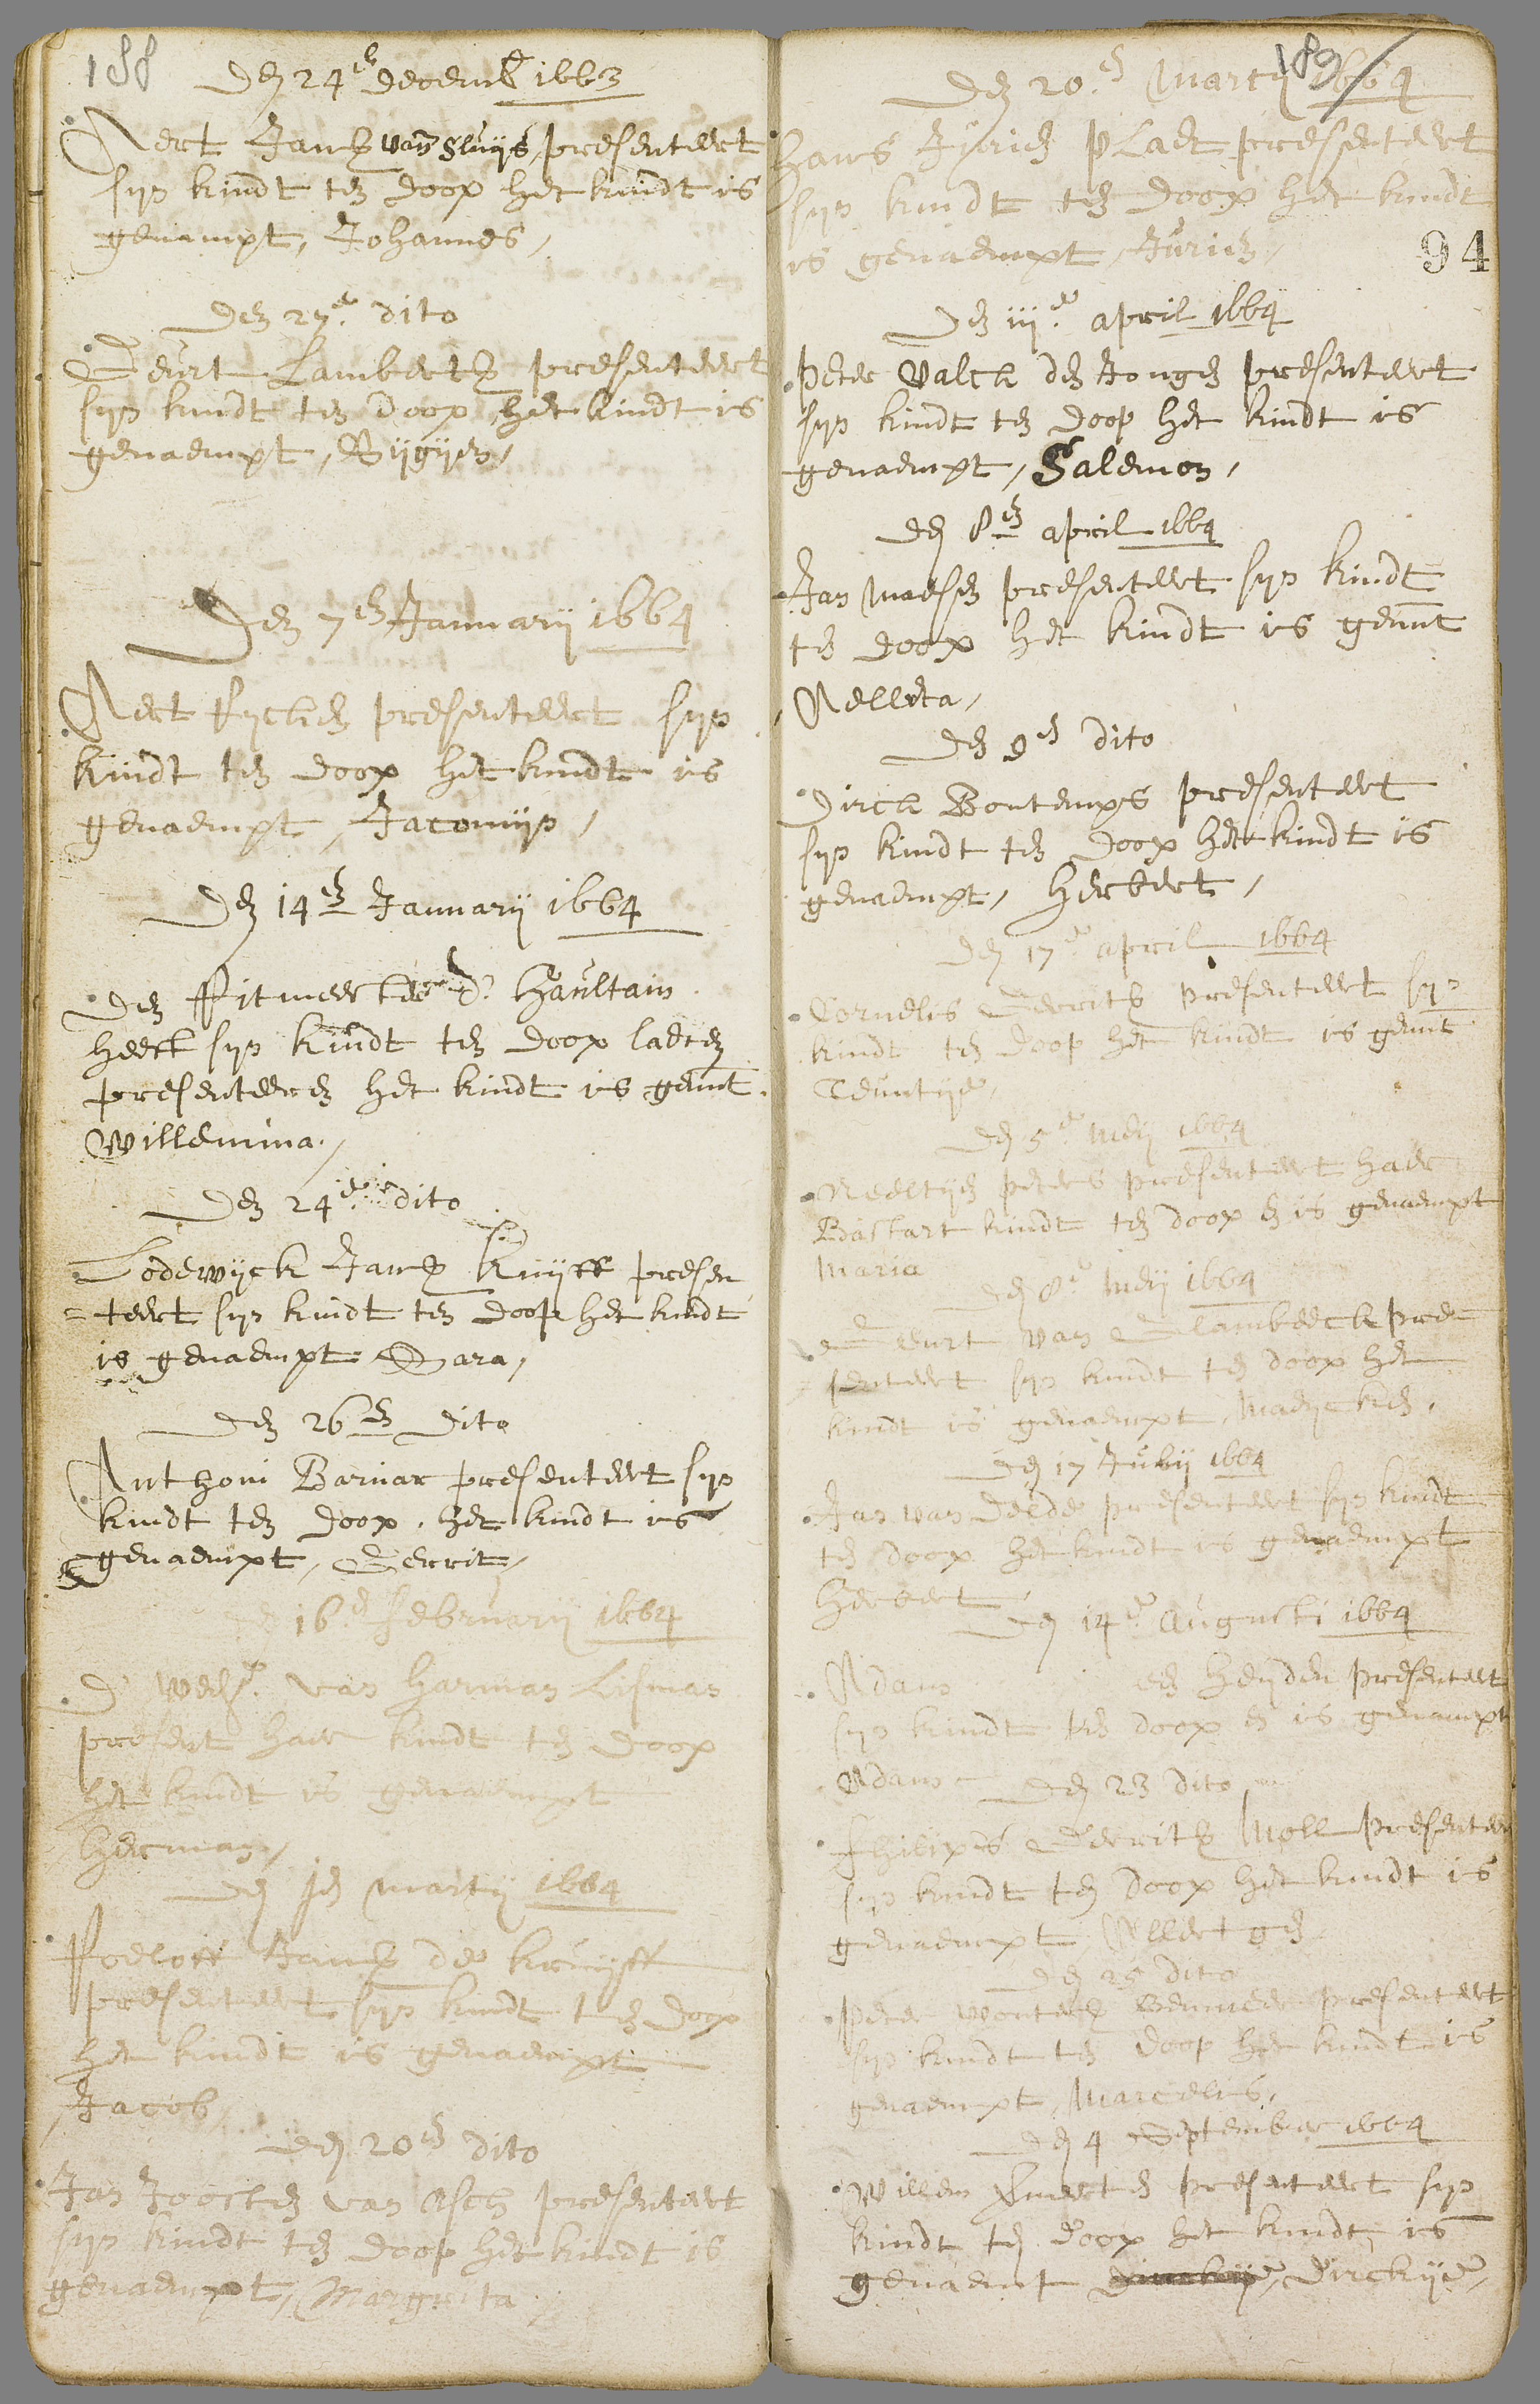 188
Den 24en decemb 1663
Aert Jansz van Sluijs, presenteert
sijn kindt ten doop het kindt is
genaempt, Johannes,
Den 27e. dito
Geurt Lambertsz presenteert
sijn kindt ten doop het kindt is
genaempt, Gijgijen,
Den 7en Januarij 1664
Aert Rijcken presenteert sijn
kindt ten doop het kindt is
genaempt, Jacomijn,
Den 14en Januarij 1664
Den Ritmeester d'. Haultain
heeft sijn kindt ten doop laeten
presenteeren het kindt is genmt.
Willemina.,
Den 24e. dito
Lodewijck Jansz Kuijff presen
=teert sijn kindt ten doop het kindt
is genaempt Sara,
Den 26en Dito
Anthoni Barnar presenteert sijn
kindt ten doop. het kindt is
genaempt, Gerrit,
16e. Februarij 1664
D' weduwe. van Harman Lisman
present haer kindt ten doop
het kindt is genaempt
Herman,
Den Jen martij 1664
Roeloff Jansz de Kruijff
presenteert sijn kindt ten doop
het kindt is genaempt
Jacob,
Den 20en dito
Jan Joosten van Asch presenteert
sijn kindt ten doop het kindt is
genaempt, Margrita
189
Den 20.en Martij 1664
Hans Jurien pLaet presenteert
sijn kindt ten doop het kindt
is genaempt, Jurien,
94
Den iije. april 1664
Peter Valck den Jongen presenteert
sijn kindt ten doop het kindt is
genaempt, Salemon,
Den 8en april 1664
Jan Maessen presenteert sijn kindt
ten doop het kindt is genmt
Nelleta,
Den 9en dito
Dirck Bontemps presenteert
sijn kindt ten doop het kindt is
genaempt, Herbert,
Den 17e. april 1664
Cornelis Gerritsz presenteert sijn
kindt ten doop het kindt is genmt
Teuntije,
Den 5e. Meij 1664
Neeltijen peters presenteert haer
Bastart kindt ten doop en is genaempt
Maria
Den 8e. Meij 1664
Geurt van Glambeeck pre
senteert sijn kindt ten doop het
kindt is genaempt, Maeijcken.
Den 17 Julij 1664
Jan van Delde presenteert sijn kindt
ten doop het kindt is genaempt
Herbert
Den 14e. Augusti 1664
Adam een heijden presenteert
sijn kindt ten doop en is genaempt
Adam
Den 23 dito
Philips Gerritsz Moll presenteer
sijn kindt ten doop het kindt is
genaempt, Allertgen
Den 25 dito
Peter Woutersz presenteert
sijn kindt ten doop het kindt is
genaempt, Marcelis,
Den 4 September 1664
Willem Evertsen presenteert sijn
kindt ten doop het kindt is
genaemt Dirckije,